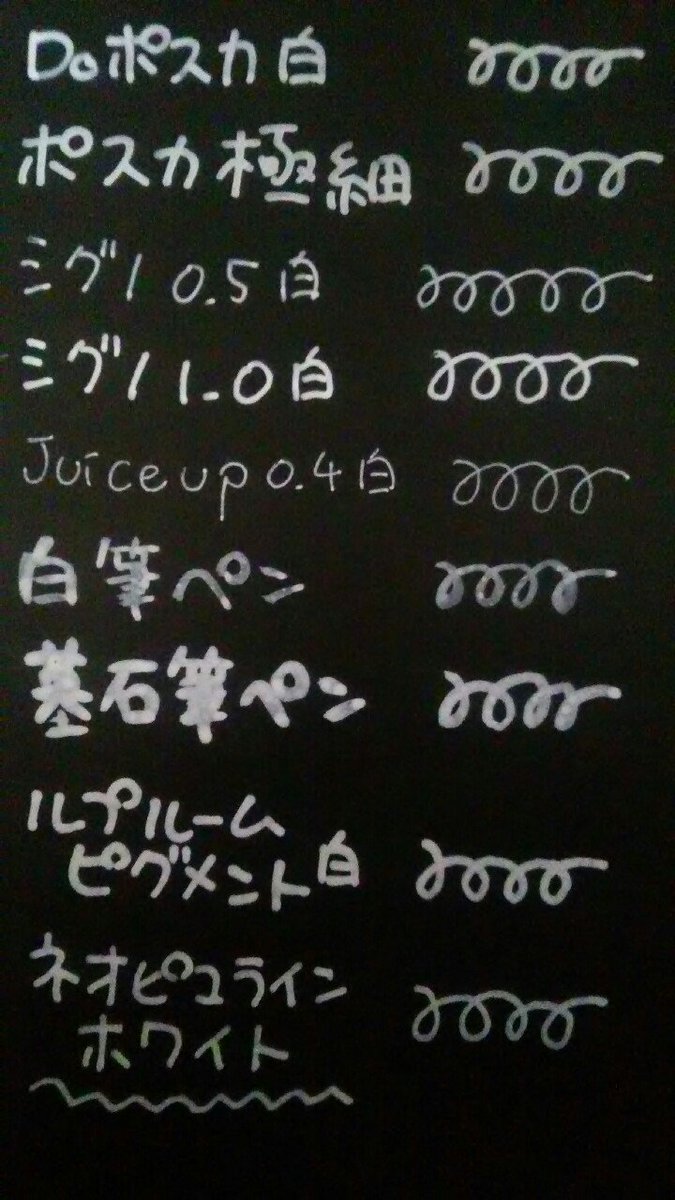 Doポスカ白
ポスカ極細
ミグノ 0.5 白
ミグノ 1.0 白
Juice up 0.4 白
白筆ペン
墓石筆ペン
ルプルーム
ピグメント白
ネオピコライン
ホワイト